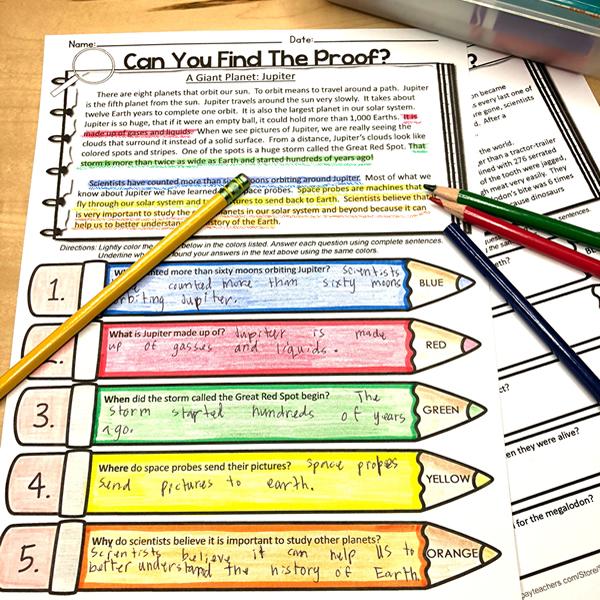 Name: Date:
Can You Find The Proof?
A Giant Planet: Jupiter
There are eight planets that orbit our sun. To orbit means to travel around a path. Jupiter
is the fifth planet from the sun. Jupiter travels around the sun very slowly. It takes about
twelve Earth years to complete one orbit. It is also the largest planet in our solar system.
Jupiter is so huge, that if it were an empty ball, it could hold more than 1,000 Earths. It is
made up of gases and liquids. When we see pictures of Jupiter, we are really seeing the
clouds that surround it instead of a solid surface. From a distance, Jupiter's clouds look like
colored spots and stripes. One of the spots is a huge storm called the Great Red Spot. That
storm is more than twice as wide as Earth and started hundreds of years ago!
Scientists have counted more than moons orbiting around Jupiter. Most of what we
know about Jupiter we have learned Space probes are machines that
fly through our solar system and to send back to Earth. Scientists believe that
is very important to study the planets in our solar system and beyond because it can
help us to better understand history of the Earth.
Directions: Lightly color the below in the colors listed. Answer each question using complete sentences.
Underline found your answers in the text above using the same colors.
1. more than sixty moons orbiting Jupiter? Scientists
counted more than sixty moons
orbiting Jupiter.
BLUE
What is Jupiter made up of? Jupiter is made
up of gasses and liquids.
RED
3. When did the storm called the Great Red Spot begin? The
storm started hundreds of years
ago.
GREEN
4. Where do space probes send their pictures? Space probes
send pictures to earth.
YELLOW
5. Why do scientists believe it is important to study other planets?
Scientists believe it can help us to
better understand the history of Earth.
ORANGE
?
became
s every last one of
are gone, scientists
d. After a
the world.
er than a tractor-trailer
lined with 276 serrated
of the tooth were jagged,
meat very easily. They
bite was 6 times
because dinosaurs
sentences
eth?
ct?
en they were alive?
for the megalodon?
payteachers.com/Store/